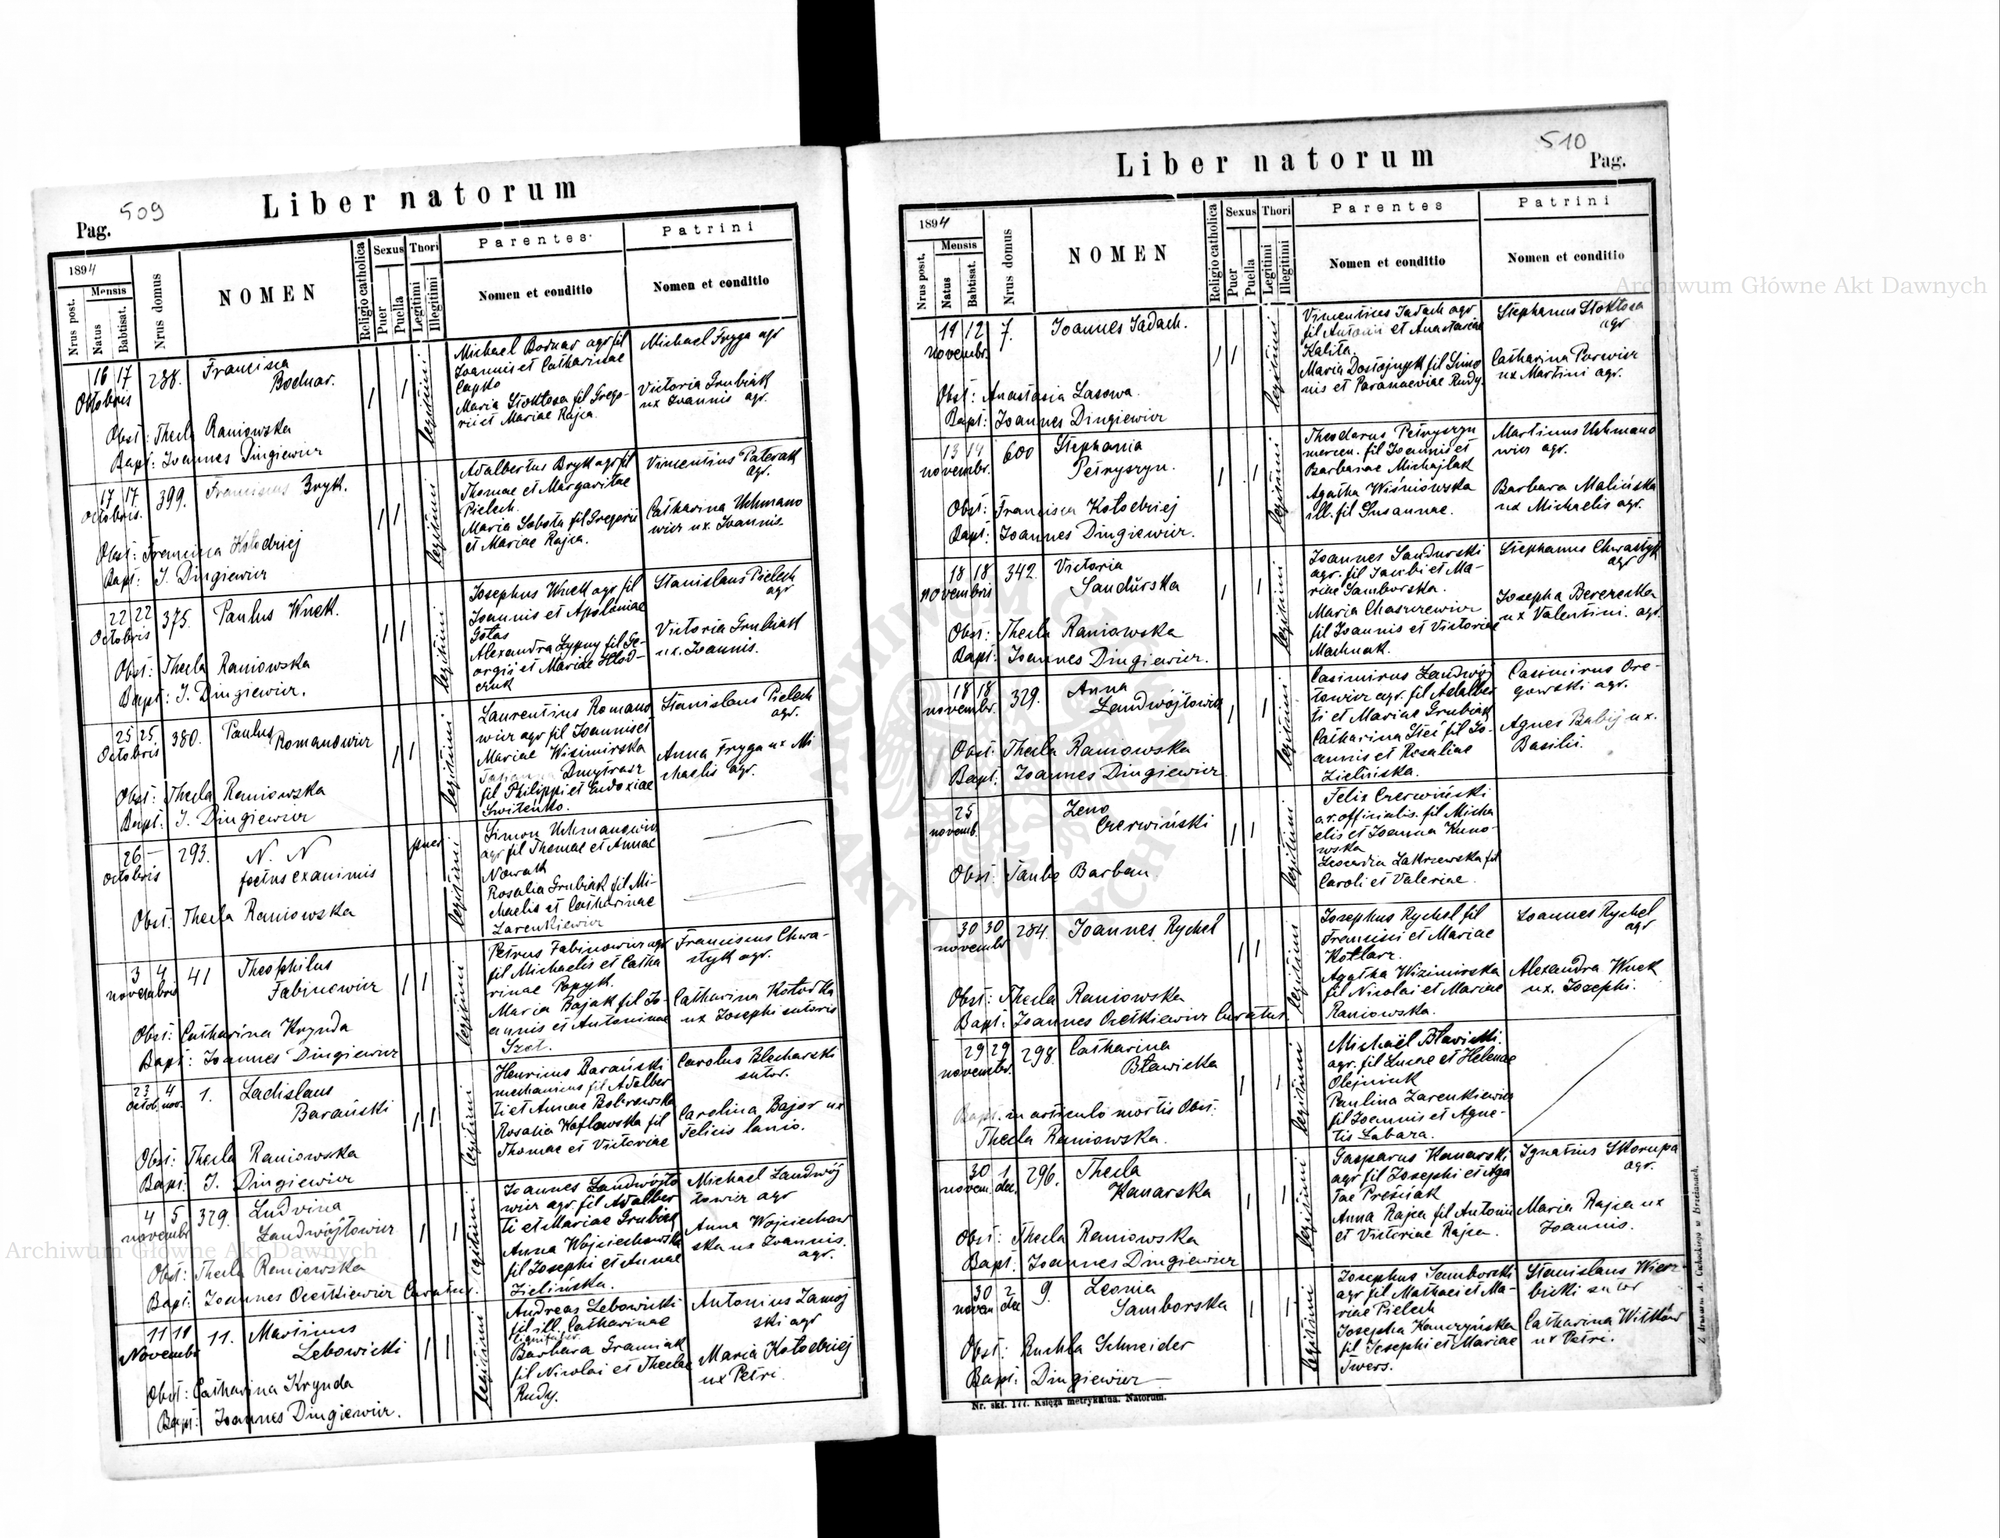 509
Pag.
Liber natorum
1894
Nrus post.
Mensis
Natus
Babtisat.
Nrus domus
NOMEN
Religio catholica
Sexus
Puer
Puella
Thori
Legitimi
Illegitimi
Parentes
Nomen et conditio
Patrini
Nomen et conditio
16 17
Oktobris
238.
Francisca
Bodnar.
1 1
legitimi
Michael Bodnar agr fil
Joannis et Catharinae
Capko
Maria Stoktosa fil Grego-
rii et Mariae Rajca.
Michael Fryga agr
Victoria Grubiak
ux Joannis agr.
Obst: Thecla Raniowska
Bapt: Joannes Dingiewicz
17 17
Octobris.
399.
Bryk.
1 1
legitimi
Adalbertus Bryk agr fil
Thomae et Margaritae
Pielech
Maria Sobota fil Gregorii
et Mariae Rajca.
Vincentius Paterak
agr.
Catharina Uchmano
wicz ux. Joannis.
Obst: Francisca Kołodziej
Bapt: J. Dingiewicz
22 22
Octobris
375.
Paulus Wnek.
1 1
legitimi
Josephus Wnek agr fil
Joannis et Apoloniae
Gotas
Alexandra Lypny fil Ge-
orgii et Mariae Hład-
czuk
Stanislaus Pielech
agr
Victoria Grubiak
ux. Joannis.
Obst: Thecla Raniowska
Bapt: J. Dingiewicz.
25 25.
Octobris
380.
Paulus
Romanowicz
1 1
legitimi
Laurentius Romano
wicz agr fil Joannis et
Mariae Wizimirska
Dmytrasz
fil Philippi et Eudoxiae
Switenko.
Stanislaus Pielech
agr.
Anna Fryga ux Mi
chaelis agr.
Obst: Thecla Raniowska
Bapt: J. Dingiewicz
26 —
Octobris
293.
N. N
foetus exanimis
puer
legitimi
Simon Uchmanowicz
agr fil Thomae et Annae
Nowak
Rosalia Grubiak fil Mi-
chaelis et Catharinae
Łazenkiewicz
Obst: Thecla Raniowska
3 4
novembris
41
Theophilus
Fabinowicz
1 1
legitimi
Petrus Fabinowicz agr
fil Michaelis et Catha
rinae Papyk.
Maria Bajak fil Jo-
annis et Antoninae
Szot.
Franciscus Chwa-
styk agr.
Catharina Kotodka
ux Josephi sutoris
Obst: Catharina Krynda
Bapt: Joannes Dingiewicz
23 4
Octob. nov.
1.
Ladislaus
Barański
1 1
legitimi
Henricus Barański
mechanicus fil Adalber
ti et Annae Bolczewska
Rosalia Kaftowska fil
Thomae et Victoriae
Carolus Blecharski
sutor.
Carolina Bajor ux
Felicis lanio.
Obst: Thecla Raniowska
Bapt: J. Dingiewicz
4 5
novembr
329.
Ludvina
Landwójtowicz
1 1
legitimi
Joannes Landwójto
wicz agr. fil Adalber
ti et Mariae Grubiak
Anna Wojciechowska
fil Josephi et Annae
Zielińska.
Michael Landwój
towicz agr
Anna Wojciechow
ska ux Joannis.
agr.
Obst: Thecla Raniowska
Bapt: Joannes Ocetkiewicz Curatus.
11 11
Novembr
11.
Martinus
Lebowicki
1 1
legitimi
Andreas Lebowicki
fil ill. Catharinae
lignifaber
Barbara Graniak
fil Nicolai et Theclae
Rudy.
Antonius Zamoj
ski agr
Maria Kołodziej
ux Petri.
Obst: Catharina Krynda
Bapt: Joannes Dingiewicz.
510
Liber natorum
Pag.
1894
Nrus posit.
Mensis
Natus
Babtisat.
Nrus domus
NOMEN
Religio catholica
Sexus
Puer
Puella
Thori
Legitimi
Illegitimi
Parentes
Nomen et conditio
Patrini
Nomen et conditio
11 12
novembr.
7.
Joannes Sadach.
1 1
legitimi
Vincentius Sadach agr
fil Antonii et Anastasiae
Kalita.
Maria Dostojnyk fil Simo
nis et Parasaeviae Rudy.
Stephanus Stoktosa
agr
Catharina Parwicz
ux Martini agr.
Obst: Anastasia Lasowa.
Bapt: Joannes Dingiewicz
13 14
novembr.
600
Stephania
Petryszyn.
1 1
legitimi
Theodorus Petryszyn
mercen. fil Joannis et
Barbarae Michajlak
Agatha Wiśniowska
ill. fil Susannae.
Martinus Uchmano
wicz agr.
Barbara Malińska
ux Michaelis agr.
Obst: Francisca Kołodziej
Bapt: Joannes Dingiewicz.
18 18
novembris
342.
Victoria
Sandurska
1 1
legitimi
Joannes Sandurski
agr. fil Jacobi et Ma-
riae Samborska.
Maria Chaszczewicz
fil Joannis et Victoriae
Machnak.
Stephanus Chwastyk
agr
Josepha Berezecka
ux Valentini. agr.
Obst: Thecla Raniowska
Bapt: Joannes Dingiewicz.
18 18
novembr.
329.
Anna
Landwójtowicz
1 1
legitimi
Casimirus Landwój
towicz agr. fil Adalber
ti et Mariae Grubiak
Catharina Steć fil Jo-
annis et Rosaliae
Zielińska.
Casimirus Ore-
gowski agr.
Agnes Babij ux.
Basilii.
Obst: Thecla Raniowska
Bapt. Joannes Dingiewicz
25
novemb.
Zeno
Czerwiński
1 1
legitimi
Felix Czerwiński
a.r. officialis. fil Micha
elis et Joanna Kuno-
wska
Leocadia Zakrzewska fil
Caroli et Valeriae.
Obst: Taube Barban
30 30
novembr
284.
Joannes Rychel
1 1
legitimi
Josephus Rychel fil
Francisci et Mariae
Kotlarz.
Agatha Wizimirska
fil Nicolai et Mariae
Raniowska.
Joannes Rychel
agr
Alexandra Wnek
ux. Josephi.
Obst: Thecla Raniowska
Bapt: Joannes Ocetkiewicz Curatus
29 29
novembr.
298.
Catharina
Bławicka
1 1
legitimi
Michaël Bławicki.
agr. fil Lucae et Helenae
Olejniuk
Paulina Łazenkiewicz
fil Joannis et Agne-
tis Labara.
Bapt. in articulo mortis Obst.
Thecla Raniowska.
30 1
novem. dec.
296.
Thecla
Kanarska
1 1
legitimi
Gasparus Kanarski
agr fil Josephi et Aga
tae Preśniak
Anna Rajca fil Antonii
et Victoriae Rajca.
Ignatius Skorupa
agr.
Maria Rajca ux
Joannis.
Obst: Thecla Raniowska
Bapt. Joannes Dingiewicz
30 2
novem dec
9.
Leonia
Samborska
1 1
legitimi
Josephus Samborski
agr fil Mathaei et Ma-
riae Pielech
Josepha Kanczyńska
fil Josephi et Mariae
Twers.
Stanislaus Wierz-
bicki sutor
Catharina Witków
ux Petri.
Obst: Ruchla Schneider
Bapt: Dingiewicz
Nr. skł. 177. Księga metrykalna. Natorum.
Z drukarni A. Cichockiego w Brzeżanach.
Archiwum Główne Akt Dawnych
Archiwum Główne Akt Dawnych